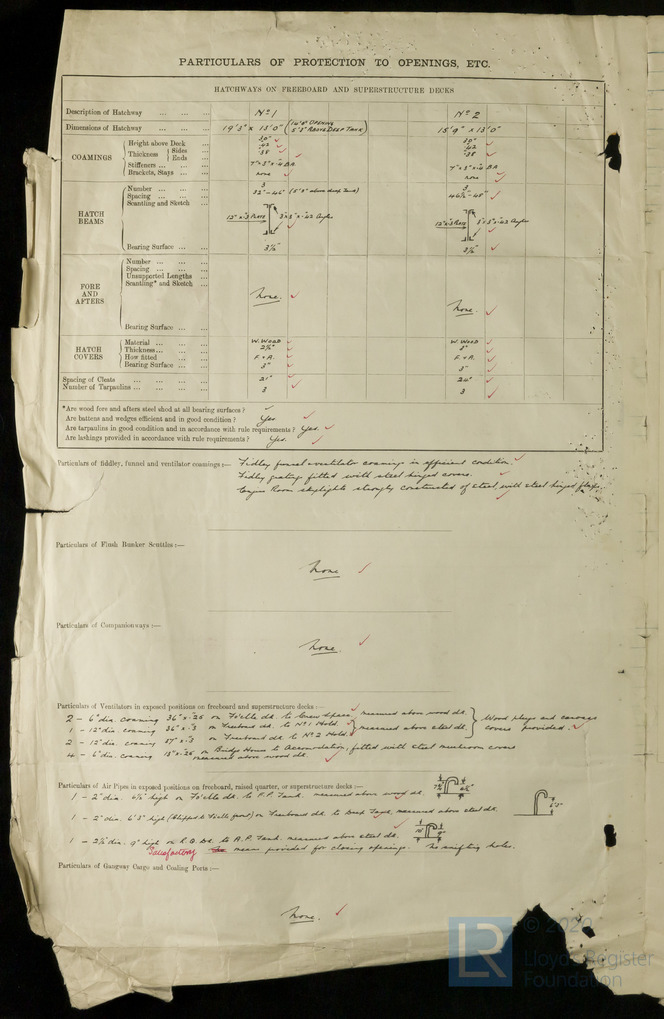 PARTICULARS OF PROTECTION TO OPENINGS, ETC.
HATCHWAYS ON FREEBOARD AND SUPERSTRUCTURE DECKS
Description of Hatchway ... ... ... No 1 No 2
Dimensions of Hatchway ... ... ... 19'3" x 13'0" (14'8" OPENING 5'3" ABOVE DEEP TANK) 15'9" x 13'0"
COAMINGS
Height above Deck ... 30" 30"
Thickness Sides ... .42 .42
Ends ... .38 .38
Stiffeners ... ... ... 7" x 3" x .4 BA 7" x 3" x .4 BA
Brackets, Stays ... ... none none
HATCH BEAMS
Number ... ... ... 3 3
Spacing ... ... ...
Scantling and Sketch ...
Bearing Surface ... ... 3½" 3½"
FORE AND AFTERS
Number ... ... ...
Spacing ... ... ...
Unsupported Lengths ...
Scantling* and Sketch ... None. None.
Bearing Surface ... ...
HATCH COVERS
Material ... ... ... W. WOOD W. WOOD
Thickness ... ... ... 2½" 3"
How fitted ... ... F + A. F + A.
Bearing Surface ... ... 3" 3"
Spacing of Cleats ... ... ... 21" 24"
Number of Tarpaulins ... ... ... 3 3
*Are wood fore and afters steel shod at all bearing surfaces?
Are battens and wedges efficient and in good condition? Yes.
Are tarpaulins in good condition and in accordance with rule requirements? Yes.
Are lashings provided in accordance with rule requirements? Yes.
Particulars of fiddley, funnel and ventilator coamings:— Fidley funnel & ventilator coamings in efficient condition
Fidley gratings fitted with steel hinged covers.
Engine Room skylights strongly constructed of steel, with steel hinged flaps
Particulars of Flush Bunker Scuttles:—
None
Particulars of Companionways:—
None.
Particulars of Ventilators in exposed positions on freeboard and superstructure decks:—
2 - 6" dia. coaming 36" x .26 on Fo'c'tle dk. to Crew Space, measured above wood dk.
1 - 12" dia. coaming 36" x .3 on Freeboard dk. to No 1 Hold. measured above steel dk. Wood plugs and canvas covers provided.
2 - 12" dia. coaming 37" x .3 on Freeboard dk. to No 2 Hold.
4 - 6" dia. coaming 18" x .26 on Bridge House to Accomodation, fitted with steel mushroom covers
measured above wood dk.
Particulars of Air Pipes in exposed positions on freeboard, raised quarter, or superstructure decks:—
1 - 2" dia. 4½" high on Fo'c'tle dk. to F.P. Tank. measured above wood dk.
1 - 2" dia. 6'3" high on Freeboard dk. to Deep Tank, measured above steel dk.
1 - 2½" dia. 9" high on R.Q. Dk. to A.P. Tank. measured above steel dk.
Satisfactory means provided for closing openings. No snifting holes.
Particulars of Gangway Cargo and Coaling Ports:—
None.
© 2020
Lloyd's Register
Foundation
LR